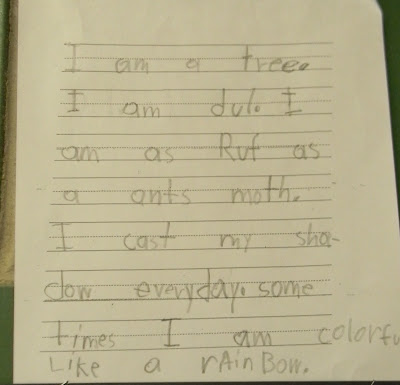 I am a tree.
I am dul. I
am as Ruf as
a ants moth.
I cast my sha-
dow everyday. some
times I am colorfu
Like a rAinBow.